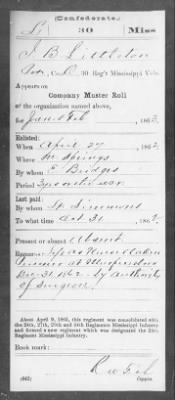 (Confederate.)
L 30 Miss
J B Littleton
Co. 30 Reg't Mississippi Vols.
Appears on
Company Muster Roll
of the organization named above,
for Jan & Feb , 1863.
Enlisted:
When April 27 , 1862.
Where Springs
By whom E Bridges
Period 3 years or war
Last paid:
By whom Simmons
To what time Oct 31 , 1862.
Present or absent Absent
Remarks:
at Murfreesboro
Dec 31, 1862. by authority
of Surgeon
About April 9, 1865, this regiment was consolidated with
the 24th, 27th, 29th and 34th Regiments Mississippi Infantry
and formed a new regiment which was designated the 24th
Regiment Mississippi Infantry.
Book mark:
(642) Copyist.